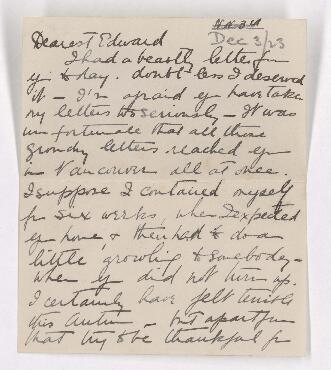 Dec 3/23
Dearest Edward
I had a beastly letter from
you to day. doubtless I deserved
it - I'm afraid you have taken
my letters too seriously - It was
unfortunate that all those
grouchy letters reached you
in Vancouver all at once
I suppose I contained myself
for six weeks, when I expected
you home, & then had to do a
little growling to somebody -
when you did not turn up.
I certainly have felt terrible
this Autumn - but apart from
that try to be thankful for